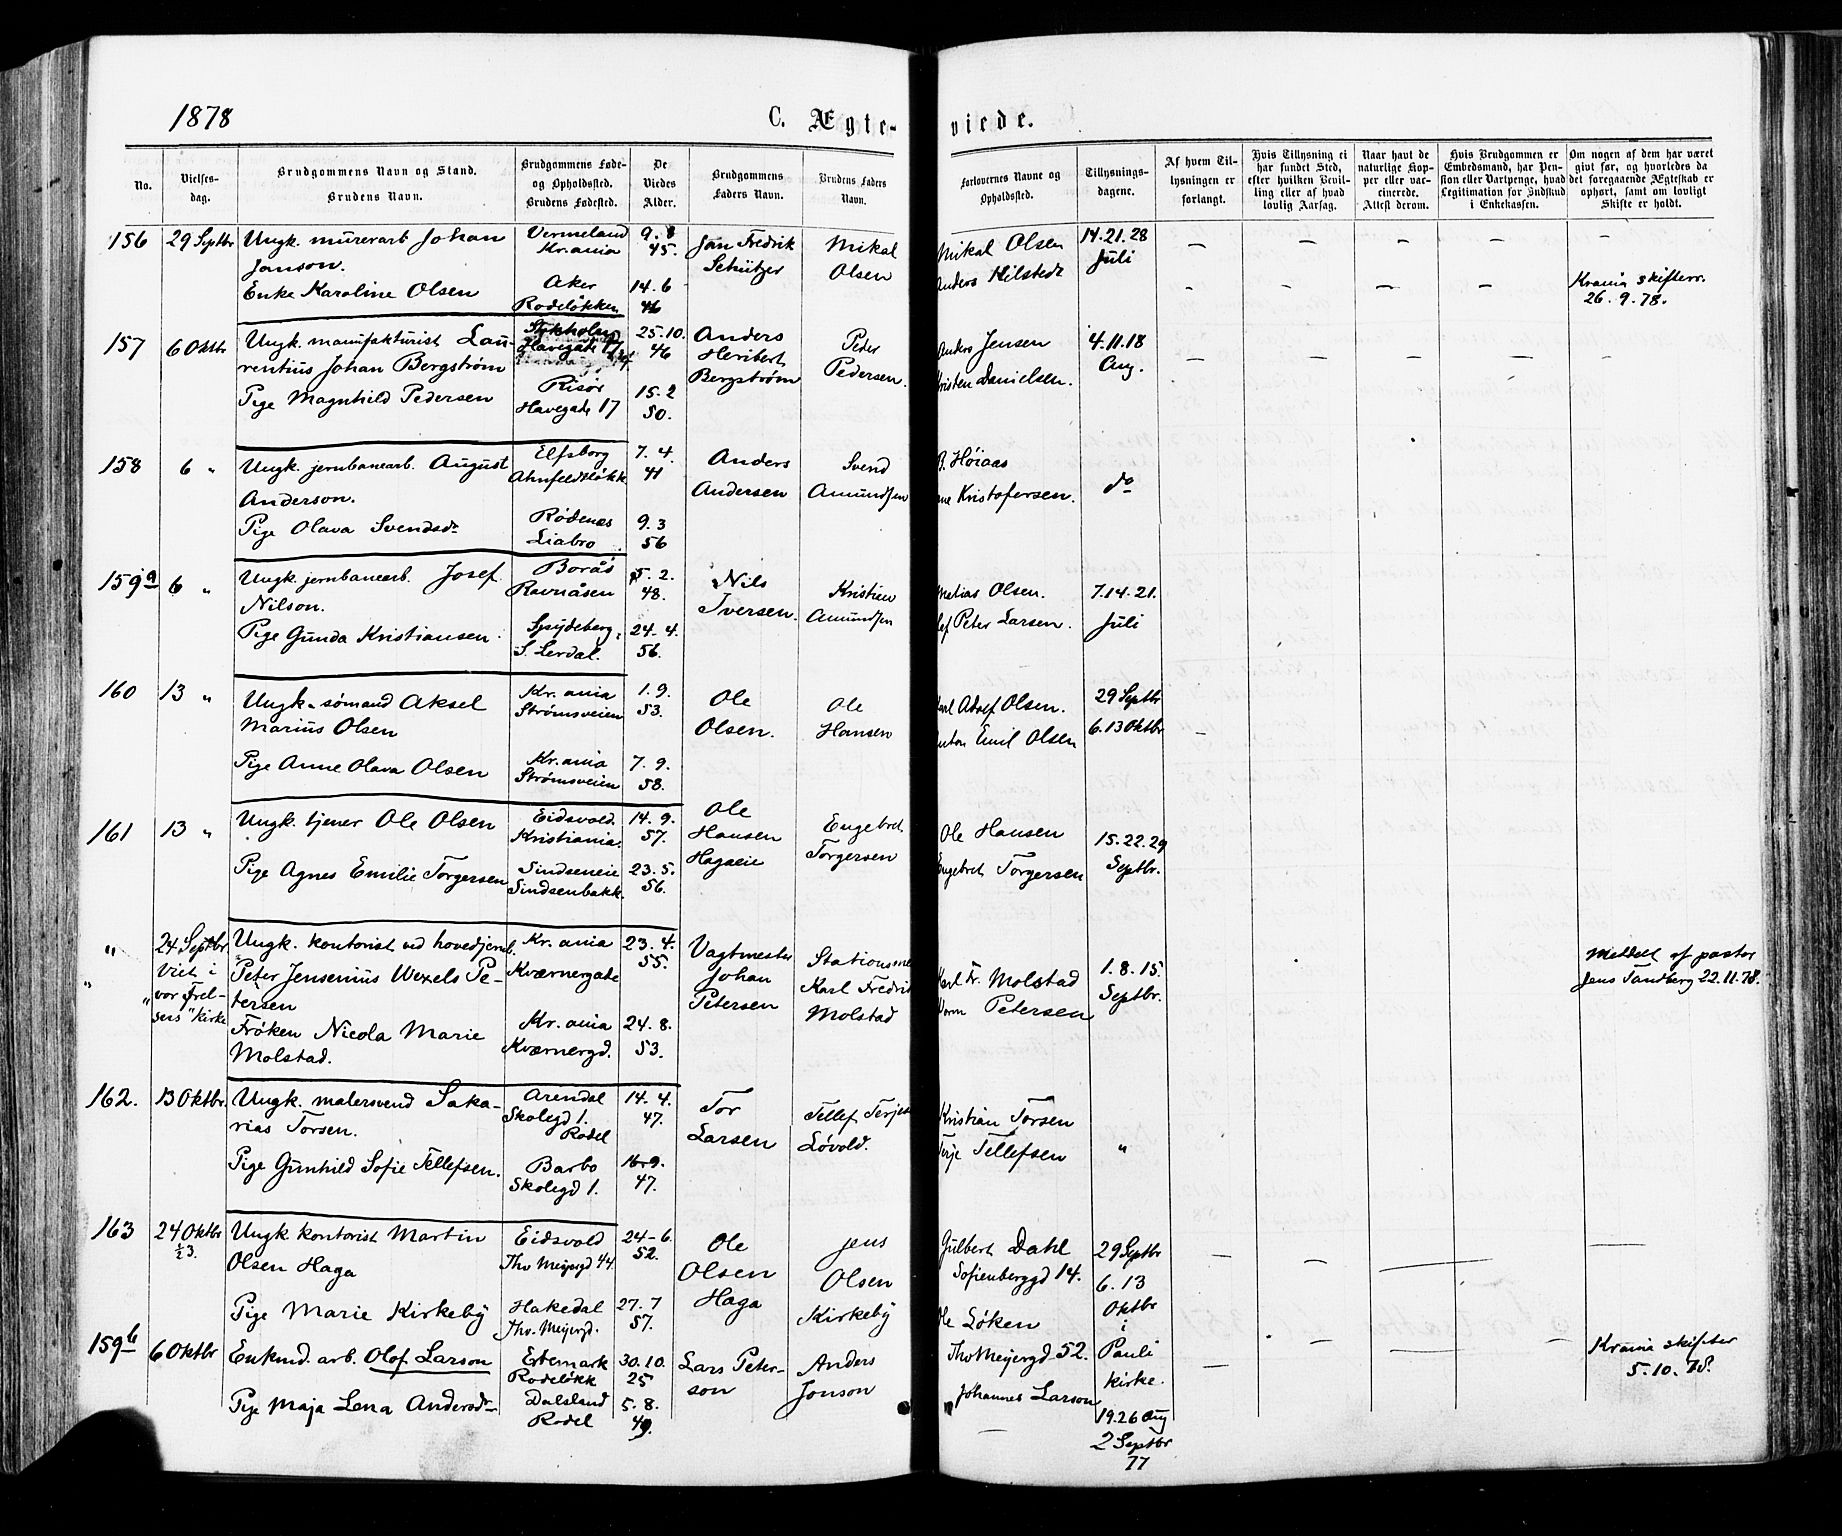 1878
C. Ægte-
viede.
No.
Vielses-
dag.
Brudgommens Navn og Stand.
Brudens Navn.
Brudgommens Føde-
og Opholdssted.
Brudens Fødested.
De
Viedes
Alder.
Brudgommens
Faders Navn.
Brudens Faders
Navn.
Forlovernes Navne og
Opholdssted.
Tillysnings-
dagene.
Af hvem Til-
lysningen er
forlangt.
Hvis Tillysning ei
har fundet Sted,
efter hvilken Bevil-
ling eller af hvad
lovlig Aarsag.
Naar havt de
naturlige Kop-
per eller vac-
cinerede.
Attest derom.
Hvis Brudgommen er
Embedsmand, har Pen-
sion eller Vartpenge, hvad
Legitimation for Indskud
i Enkekassen.
Om nogen af dem har været
givt før, og hvorledes da
det foregaaende Ægteskab er
ophørt, samt om lovligt
Skifte er holdt.
156 29 Septbr Ungk. murerarb Johan
Janson.
Enke Karoline Olsen
Vermeland
Kr.ania
Aker
Rodeløkken
9. 8
45.
14-6
46
Jan Fredrik
Schützer
Mikal
Olsen
Mikal Olsen
Anders Hilstedt
14.21.28
Juli
Krania skifterr.
26.9.78.
157 6 Oktbr Ungk. manufakturist Lau-
rentius Johan Bergstrøm
Pige Magnhild Pedersen
Stokholm
Havegade 17
Risør
Havegade 17
25-10.
46
15-2
50.
Anders
Heribert
Bergstrøm
Peder
Pedersen.
Anders Jensen
Kristen Danielsen.
4.11.18
Aug.
158 6 " Ungk. jernbanearb. August
Anderson.
Pige Olava Svendsdr
Elfsborg
Ahnfeldtsløkk.
Rødenæs
Liabro
7. 4.
41
9. 3
56
Anders
Andersen
Svend
Amundsen
B. Høiaas
Kristofersen.
do
159a 6 " Ungk. jernbanearb. Josef
Nilson.
Pige Gunda Kristiansen.
Borås
Ravnåsen
Spydeberg
S. Lerdal.
5. 2.
48.
24-4.
56.
Nils
Iversen.
Kristien
Amundsen
Matias Olsen.
Peter Larsen.
7.14.21.
Juli
160 13 " Ungk. sømand Aksel
Marius Olsen
Pige Anne Olava Olsen
Kr.ania
Strømsveien
Kr.ania
Strømsveien
1. 9.
53.
7. 9.
58.
Ole
Olsen.
Ole
Hansen
Adolf Olsen.
Anton Emil Olsen
29 Septbr
6.13 Oktbr
161 13 " Ungk. tjener Ole Olsen
Pige Agnes Emilie Torgersen
Eidsvold.
Kristiania.
Sindseneie
Sindsenbakk.
14. 9.
57.
23. 5.
56.
Ole
Hansen
Hagaeie
Engebret
Torgersen
Ole Hansen
Engebret Torgersen
15.22.29
Septbr.
" 24 Septbr
Viet i
"vor Frel-
sers" kirke
Ungk. kontorist ved hovedjernb.
Peter Jensenius Wexels Pe-
tersen
Frøken Nicola Marie
Molstad.
Kr.ania
Kværnergade
Kr.ania
Kværnergd.
23. 4.
55.
24. 8.
53.
Vagtmester
Johan
Petersen
Stationsme
Karl Fredrik
Molstad
Karl Fr. Molstad
Petersen
1. 8. 15.
Septbr.
Meddelt af pastor
Jens Tandberg 22.11.78.
162. 13 Oktbr. Ungk. malersvend Saka-
rias Torsen.
Pige Gunhild Sofie Tellefsen.
Arendal
Skolegd 1.
Rodel
Barbo
Skolegd 1.
14. 4.
47.
16-9.
47.
Tor
Larsen
Tellef Terjes
Løvold.
Kristian Torsen
Terje Tellefsen
"
163 24 Oktbr
Ungk kontorist Martin
Olsen Haga
Pige Marie Kirkeby
Eidsvold
Thv Meijergd 44.
Hakedal
Thv. Meijergd.
24-6.
52.
27. 7
57.
Ole
Olsen
Haga
Jens
Olsen
Kirkeby
Gulbert Dahl
Sofienberggd 14.
Ole Løken
Thv Meijergd 52.
29 Septbr
6. 13
Oktbr
i
Pauli
kirke.
159b 6 Oktbr Enkmd. arb. Olof Larson
Pige Maja Lena Andersdr
Ertemark
Rodeløkk
Dalsland
Rodel
30. 10.
25
5. 8.
49.
Lars Peter-
son
Anders
Jonson
Johannes Larson
19.26 Aug
2 Septbr
77
Krania skifter
5.10.78.